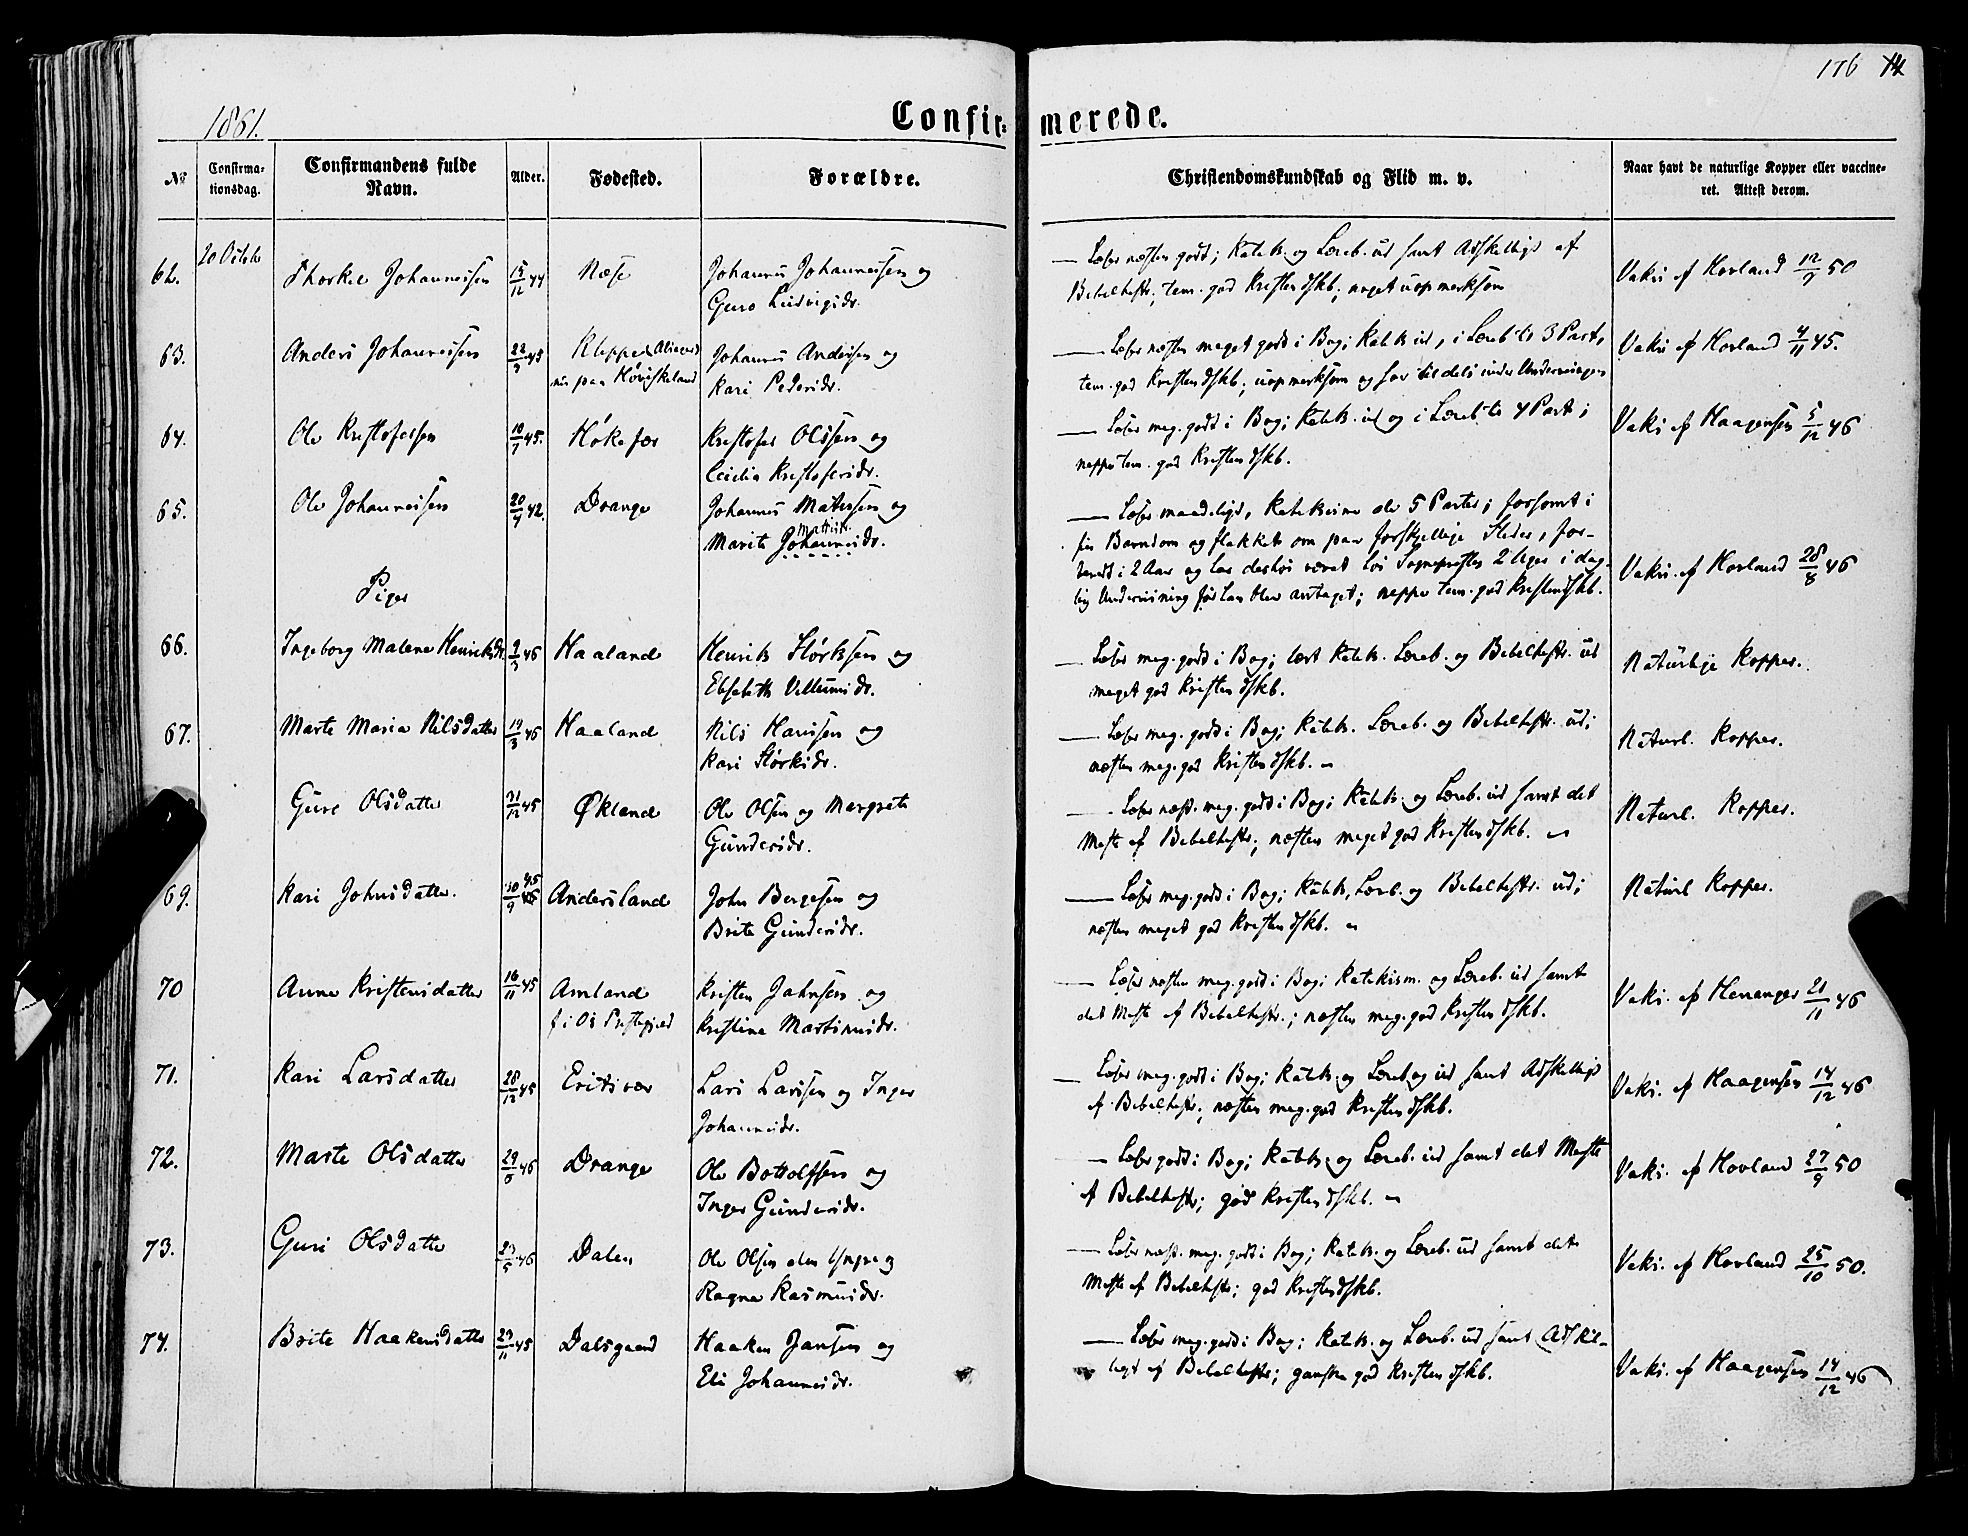 176 14
1861.
Confir-merede.
No
Confirma-
tionsdag.
Confirmandens fulde
Navn.
Alder.
Fødested.
Forældre.
Christendomskundskab og Flid m. v.
Naar havt de naturlige Kopper eller vaccine-
ret. Attest derom.
62. 20 Octob Thorkel Johannessen 15/12 44 Næse Johannes Johannessen og
Guro Ludvigsdr.
— Læser næsten godt; Katek. og Læreb. ud samt Adskelligt af
Bibelhistr.; tem. god Kristendskb.; noget uopmerksom
Vakc. af Hovland 12/9 50
63. Anders Johannessen 22/9 45 Kleppe i
nu paa Høviskeland
Johannes Andersen og
Kari Pedersdr.
— Læser næsten meget godt i Bog; Katek ud, i Læreb. til 3 Part,
tem. god Kristendskb.; uopmerksom og sov tildels under Undervisningen
Vakc. af Hovland 4/11 45.
64. Ole Kristofersen 10/7 45. Høkefær Kristofer Olssen og
Cecilia Kristofersdr.
— Læser meg. godt i Bog; Katek. ud og i Læreb. til 4 Part;
neppe tem. god Kristendskb.
Vakc. af Haagensen 5/12 46
65. Ole Johannessen 20/4 42. Drange Johannes Matissen og
Marite Johannesdr.
Mattisdr.
— Læser maadeligt, Katekisme de 5 Parter; forsømt i
sin Barndom og flakket om paa forskjellige Steder, for-
beredt i 2 Aar og har desfor været hos Sognepresten 2 Uger i dag-
lig Undervisning før han blev antaget; neppe tem. god Kristendskb.
Vakc. af Hovland 28/8 46
Piger
66. Ingeborg Malene Henriksdr. 9/3 46 Haaland Henrik Størksen og
Elisabeth Villumsdr.
— Læser meg. godt i Bog; lært Katek. Læreb. og Bibelhistr. ud
meget god Kristendskb.
Naturlige Kopper.
67. Marte Maria Nilsdatter 19/3 46 Haaland Nils Hansen og
Kari Størksdr.
— Læser meg. godt i Bog; Katek. Læreb. og Bibelhistr. ud;
næsten meg. god Kristendskb. —
Naturl. Kopper.
Guro Olsdatter 31/12 45 Økland Ole Olsen og Margrete
Gundersdr.
— Læser næst. meg. godt i Bog; Katek. og Læreb. ud samt det
Meste af Bibelhistr.; næsten meget god Kristendskb. —
Naturl. Kopper.
69. Kari Johnsdatter. 10/9 45 Andersland John Bergesen og
Brite Gundersdr.
— Læser meg. godt i Bog; Katek, Læreb. og Bibelhistr. ud;
næsten meget god Kristendskb. —
Naturl Kopper.
70 Anne Kristensdatter 16/11 45 Amland
f. i Os Prestegjeld
Kristen Jahnsen og
Kristine Martinusdr.
— Læser næsten meg. godt i Bog; Katekism. og Læreb. ud samt
det Meste af Bibelhistr.; næsten meg. god Kristendskb.
Vakc. af Henanger 21/11 46
71. Kari Larsdatter 28/12 45 Eritsvær Lars Larssen og Inger
Johannesdr.
— Læser meg. godt i Bog; Katek. og Læreb. ud samt Adskelligt
af Bibelhistr.; næsten meg. god Kristendskb.
Vakc. af Haagensen 14/12 46
72. Marte Olsdatter 29/6 46 Drange Ole Bottolfsen og
Inger Gundersdr.
— Læser godt i Bog; Katek. og Læreb. ud samt det Meste
af Bibelhistr; god Kristendskb. —
Vakc. af Hovland 27/9 50
73. Guri Olsdatter 23/5 46 Dalen Ole Olsen den Yngre og
Ragna Rasmusdr.
— Læser næst. meg. godt i Bog; Katek. og Læreb. ud samt det
Meste af Bibelhistr; god Kristendskb.
Vakc. af Hovland 25/10 50.
74. Brite Haakensdatter 23/11 45 Dalsgaard Haaken Jansen og
Eli Johannesdr.
— Læser meg. godt i Bog; Katek. og Læreb. ud samt Adskil-
ligt af Bibelhistr; ganske god Kristendskb.
Vakc. af Haagensen 14/12 46